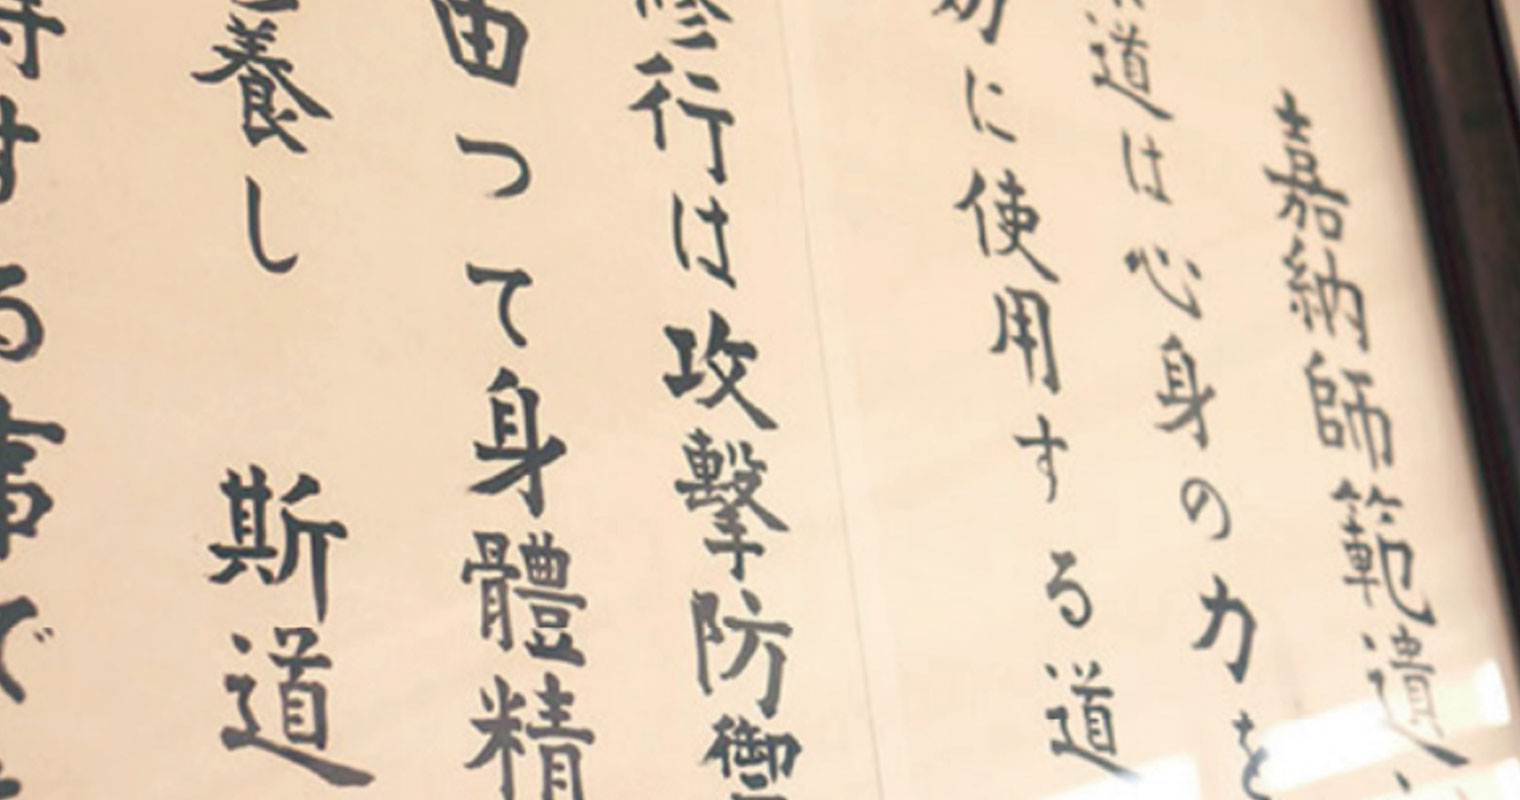 嘉納師範遺
道は心身の力を
に使用する道
修行は攻撃防禦
由つて身體精
養し 斯道
する事で